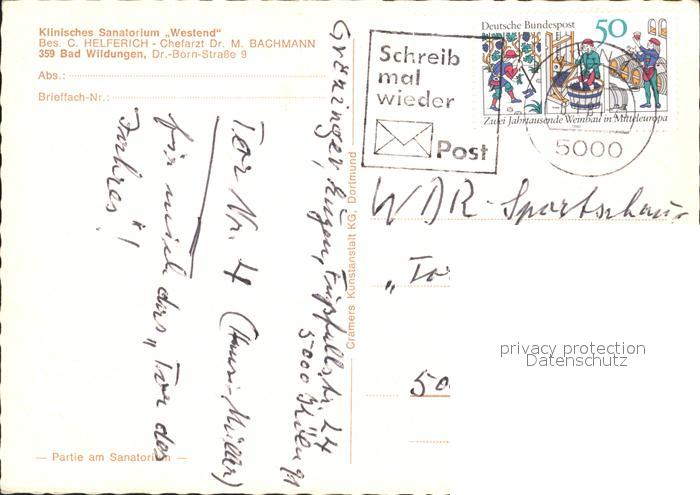 Klinisches Sanatorium „Westend"
Bes. C. HELFERICH - Chefarzt Dr. M. BACHMANN
359 Bad Wildungen, Dr.-Born-Straße 9
Abs.:
Brieffach-Nr.:
Tor Nr. 4 (Hansi Müller)
für mich das „Tor des
Jahres"!
Eugen,
24
5000 Köln 91
— Partie am Sanatorium —
Cramers Kunstanstalt KG, Dortmund
Schreib
mal
wieder
Post
Deutsche Bundespost 50
Zwei Jahrtausende Weinbau in Mitteleuropa
5000
WDR-Sportschau
„Tor
50
privacy protection
Datenschutz